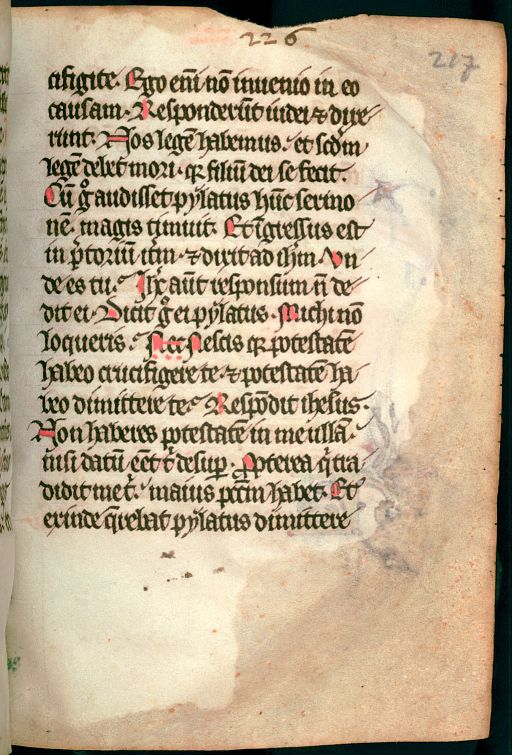 226
217
cifigite. Ego eni̅ no̅ inuenio in eo
causam. Responderu̅t iudei ⁊ dixe
runt. Nos lege̅ habemus. et scd̅m
lege̅ debet mori. qꝛ filiu̅ dei se fecit.
Cu̅ gͦ audisset pylatus hu̅c sermo
ne̅. magis timuit. Et i̅gressus est
in p̅toriu̅ itm̅. ⁊ dixit ad ihm̅. Vn
de es tu. Ihc̅ aut̅ responsum n̅ de
dit ei. Dicit gͦ ei pylatus. Michi no̅
loqueris. Nescis qꝛ potestate̅
habeo crucifigere te. ⁊ potestate̅ ha
beo dimittere te. Respo̅dit ihesus.
Non haberes potestate̅ in me ulla̅.
nisi datu̅ eet̅ t̕ desup̲. Propterea qͥ tra
didit me t̕. maius pcc̅m habet. Et
exinde q̅rebat pylatus dimittere